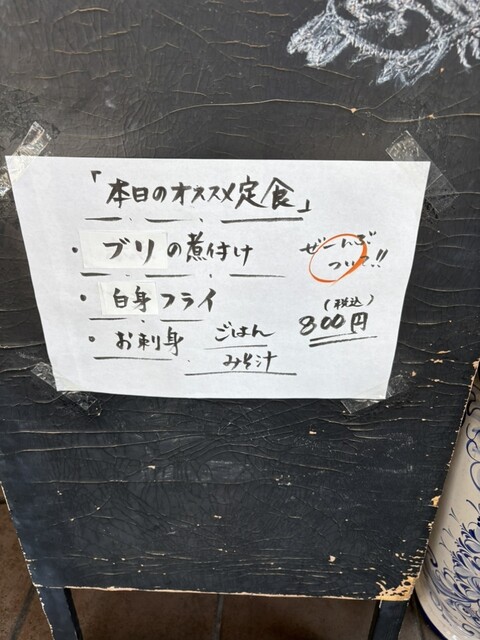 「本日のオススメ定食」
・ブリの煮付け
ぜーんぶ
ついて!!
・白身フライ
(税込)
800円
・お刺身 ごはん
みそ汁